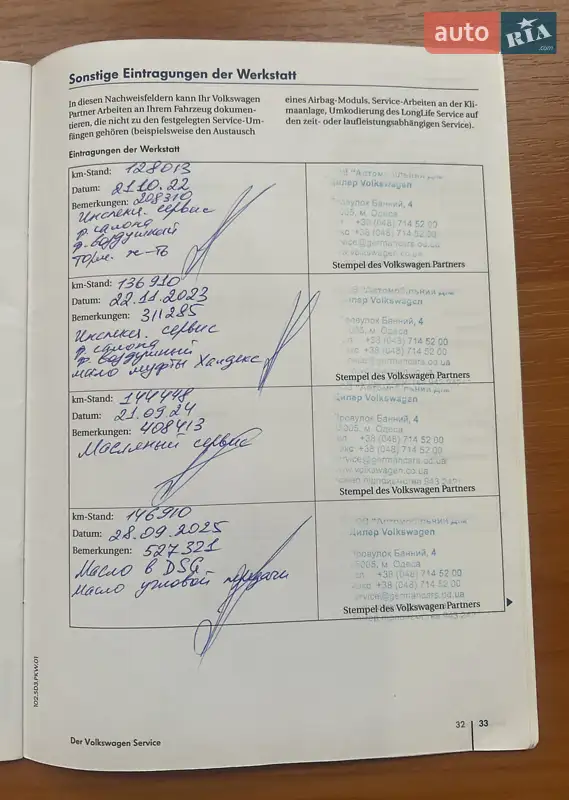 auto RIA .com
Sonstige Eintragungen der Werkstatt
In diesen Nachweisfeldern kann Ihr Volkswagen
Partner Arbeiten an Ihrem Fahrzeug dokumen-
tieren, die nicht zu den festgelegten Service-Um-
fängen gehören (beispielsweise den Austausch
eines Airbag-Moduls, Service-Arbeiten an der Kli-
maanlage, Umkodierung des LongLife Service auf
den zeit- oder laufleistungsabhängigen Service).
Eintragungen der Werkstatt
km-Stand: 128013
Datum: 21.10.22
Bemerkungen: 208310
Инспекц. сервис
ф. салона
ф. воздушный
торм. ж-ть
Дилер Volkswagen
Провулок Банний, 4
м. Одеса
+38 (048) 714 52 00
+38 (048) 714 52 02
service@germancars.od.ua
www.volkswagen.od.ua
Stempel des Volkswagen Partners
km-Stand: 136910
Datum: 22.11.2023
Bemerkungen: 311285
Инспекц. сервис
ф. салона
ф. воздушный
масло муфты Халдекс
Дилер Volkswagen
Провулок Банний, 4
м. Одеса
+38 (048) 714 52 00
+38 (048) 714 52 02
service@germancars.od.ua
Stempel des Volkswagen Partners
km-Stand: 144448
Datum: 21.09.24
Bemerkungen: 408413
Масляный сервис
Дилер Volkswagen
Провулок Банний, 4
м. Одеса
+38 (048) 714 52 00
+38 (048) 714 52 02
service@germancars.od.ua
www.volkswagen.od.ua
Stempel des Volkswagen Partners
km-Stand: 146910
Datum: 28.09.2025
Bemerkungen: 527321
Масло в DSG
масло угловой передачи
Дилер Volkswagen
Провулок Банний, 4
м. Одеса
+38 (048) 714 52 00
+38 (048) 714 52 02
service@germancars.od.ua
Stempel des Volkswagen Partners
102.5D3.PKW.01
Der Volkswagen Service
32 33